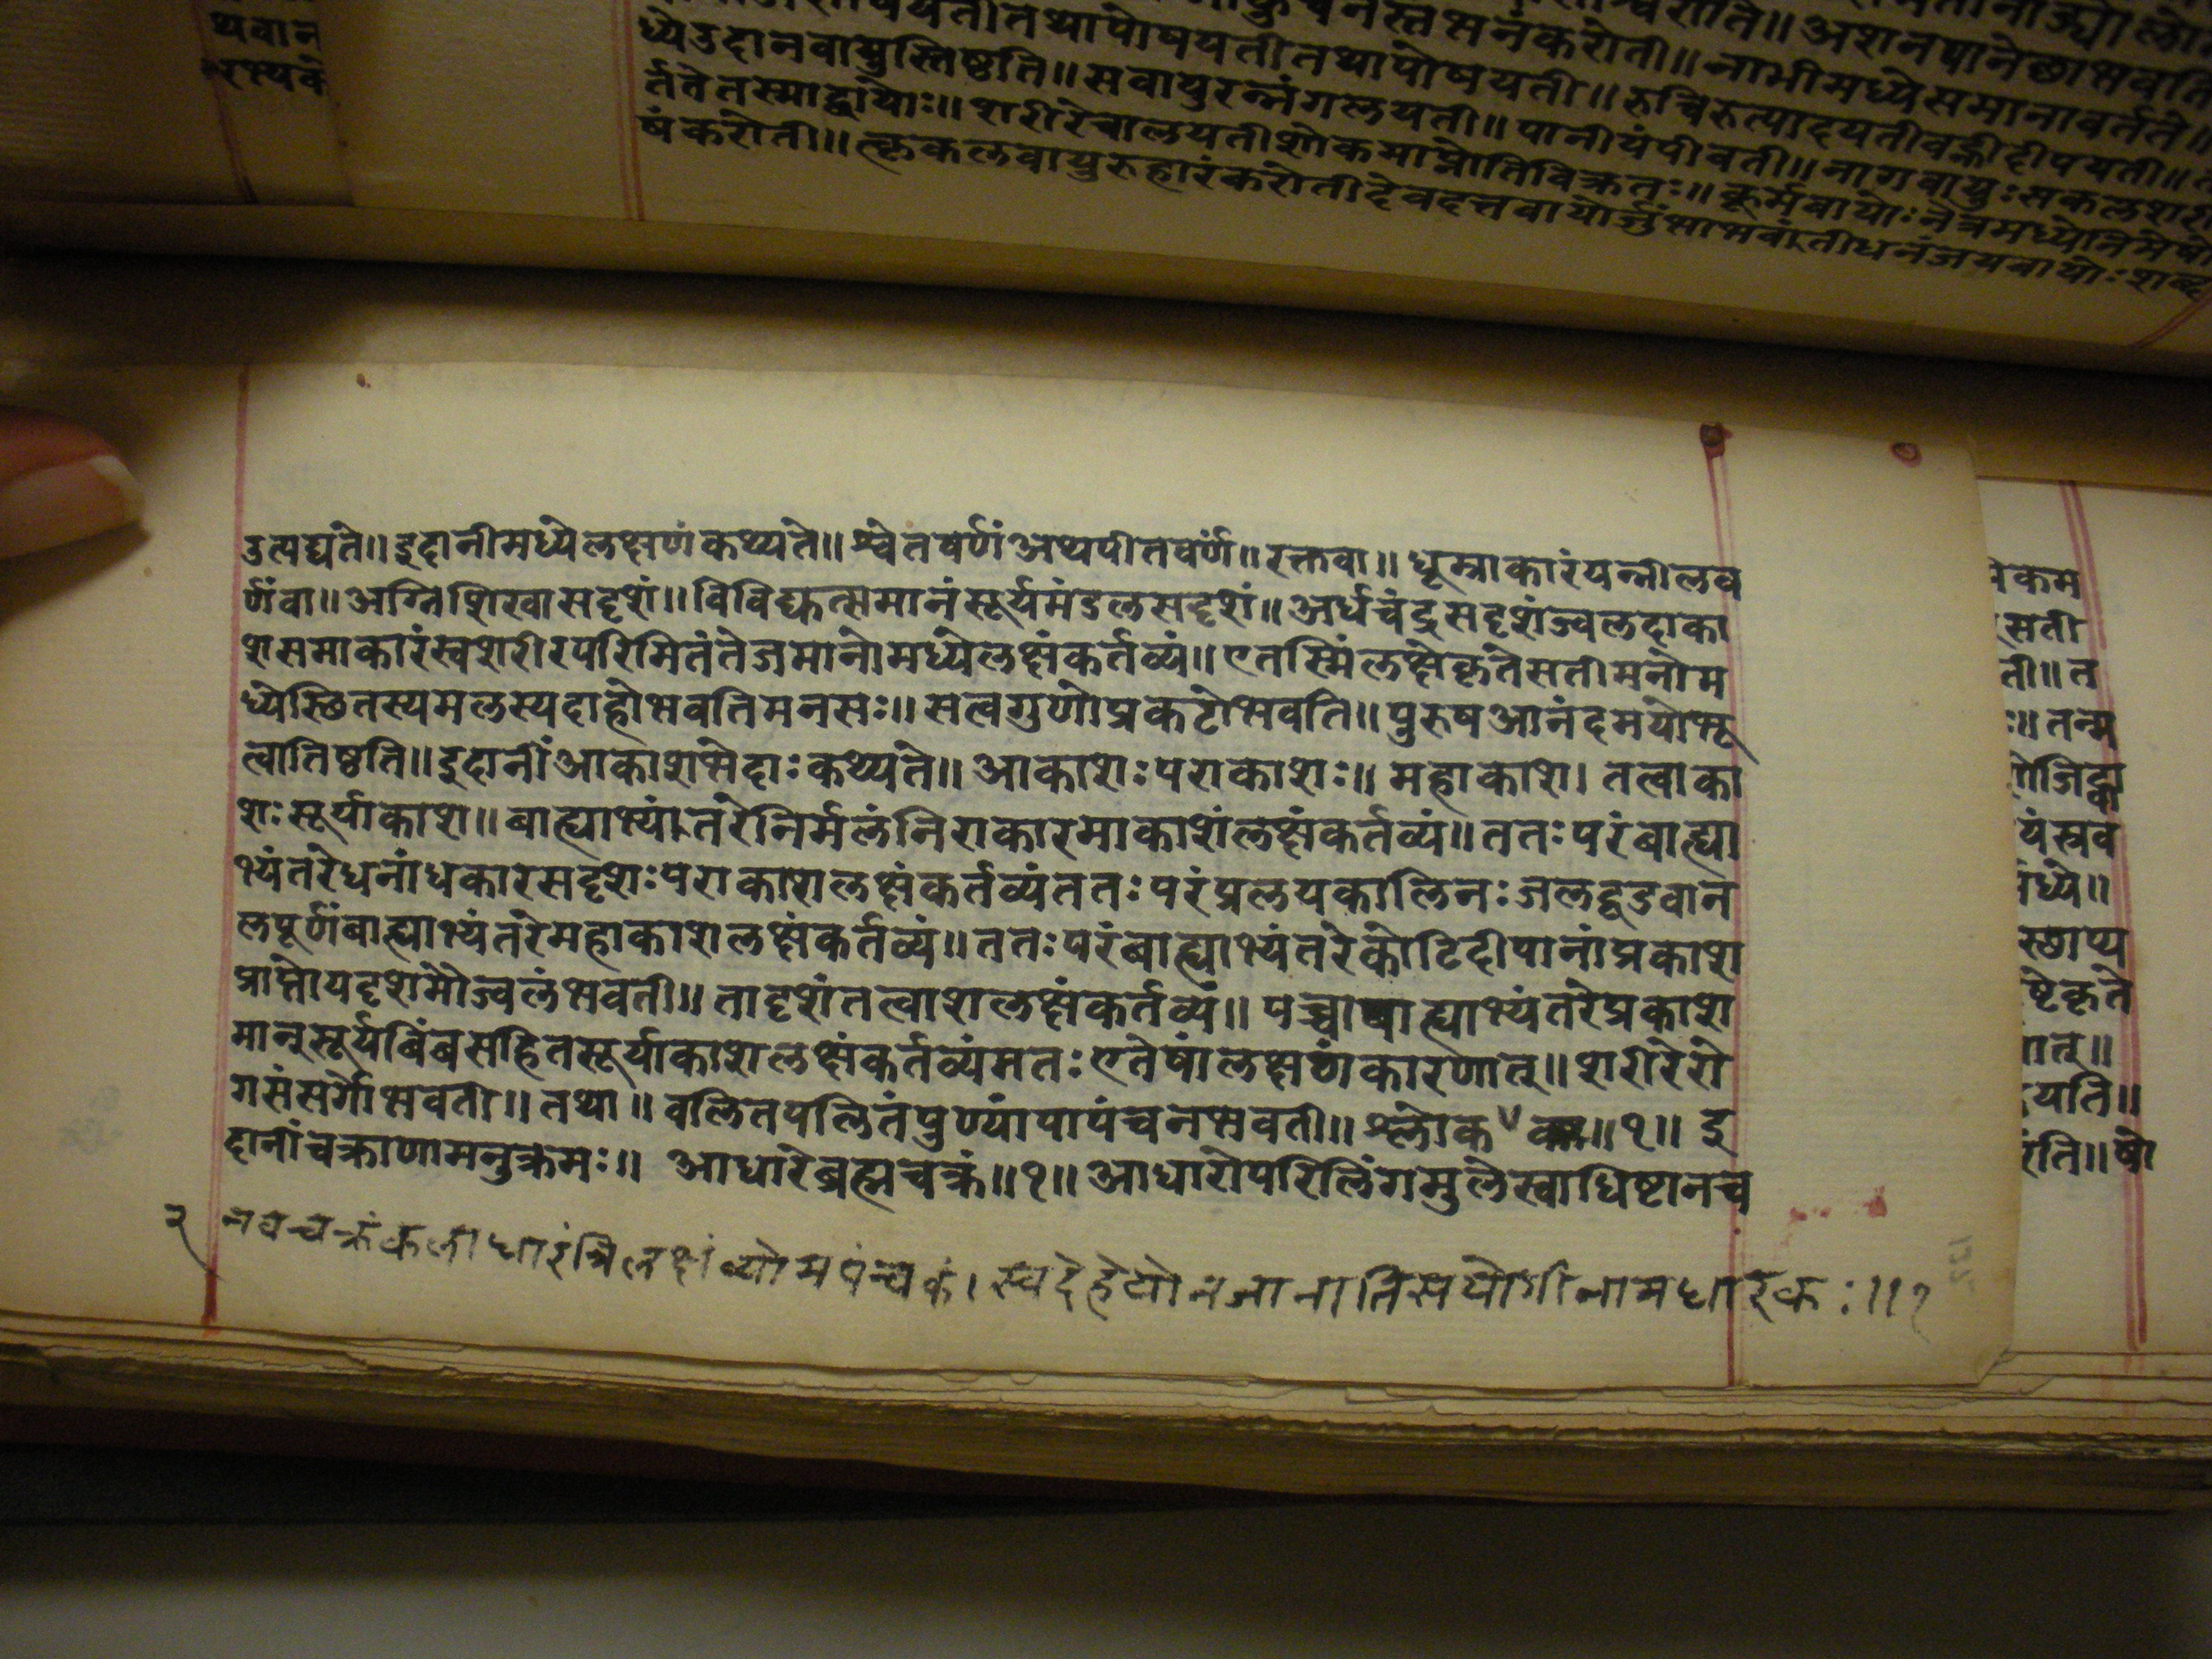 थवान
रभ्यवे
ध्येउदानवायुस्तिष्ठति॥सवायुरन्नंगलयती॥पानीयंपीवती॥नागवायुःसकलशर
र्ततेतस्माद्वायोः॥शरीरंचालयतीशोकमाप्नोतिविक्रतः॥कूर्मवायोःनेत्रमध्येनिमेषो
षंकरोती॥त्कृकलवायुरुद्गारंकरोतीदेवदत्तवायोर्जृंभाभवतीधनंजयवायोःशब्द
उत्पद्यंते॥इदानीमध्येलक्षणंकथ्यते॥श्वेतवर्णंअथपीतवर्णं॥रक्तवा॥धूम्राकारंयन्नीलव
र्णंवा॥अग्निशिखासदृशं॥विविद्युत्समानंसूर्यमंडलसदृशं॥अर्धचंद्रसदृशंज्वलदाका
शसमाकारंस्वशरीरपरिमितंतेजमानोमध्येलक्षंकर्तव्यं॥एतस्मिंलक्षेकृतेसतीमनोम
ध्येस्छितस्यमलस्यदाहोभवतिमनसः॥सत्वगुणोप्रकटोभवति॥पुरुषआनंदमयोभू
त्वातिष्ठति॥इदानींआकाशभेदाःकथ्यंते॥आकाशःपराकाशः॥महाकाश। तत्वाका
शःसूर्याकाश॥बाह्याभ्यांतरेनिर्मलंनिराकारमाकाशंलक्षंकर्तव्यं॥ततःपरंबाह्या
भ्यंतरेघनांधकारसदृशःपराकाशलक्षंकर्तव्यंततःपरंप्रलयकालिनःजलद्वडवान
लपूर्णंबाह्याभ्यंतरेमहाकाशलक्षंकर्तव्यं॥ततःपरंबाह्याभ्यंतरेकोटिदीपानांप्रकाश
प्राप्तोयदृशमोज्वलंभवती॥तादृशंतत्वाशलक्षंकर्तव्यं॥पञ्चाबाह्याभ्यंतरेप्रकाश
मानसूर्यबिंबसहितसूर्याकाशलक्षंकर्तव्यंमतःएतेषांलक्षणंकारणात्॥शरीरेरो
गसंसर्गोभवती॥तथा॥वलितपलितंपुण्यांपापंचनभवती॥श्लोक॥१॥ इ
दानींचक्राणामनुक्रमः॥ आधारेब्रह्मचक्रं॥१॥आधारोपरिलिंगमुलेस्वाधिष्टानच
२ नवचक्रंकलाधारंत्रिलक्षंव्योमपंन्चकं। स्वदेहेयोनजानातिसयोगीनामधारकः॥१
सती
ती॥त
ः॥तन्म
यंस्त्रव
मध्ये॥
स्छाप्य
ष्टेकृते
ात्॥
यति॥
रंति॥षो